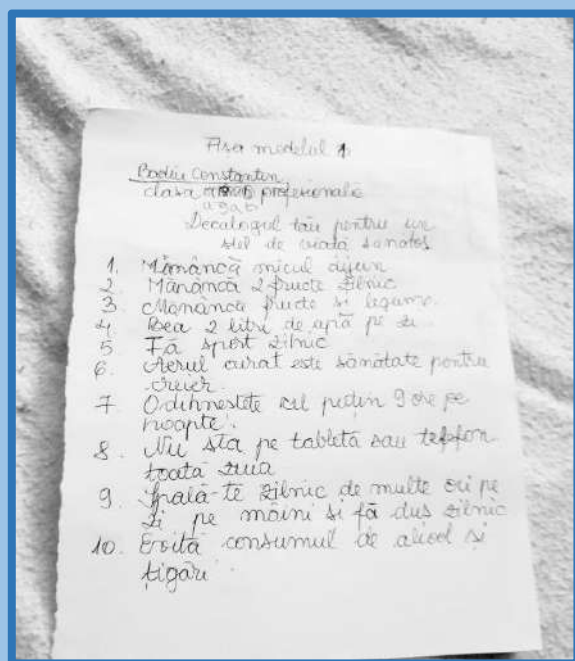 Fișa modelul 1
Bodiu Constantin
clasa profesionala
a 9 a b
Decalogul tău pentru un
stil de viată sanatos
1. Mămâncă micul dijun
2. Mănâncă 2 fructe zilnic
3 Mănâncă fructe si legume.
4. Bea 2 litri de apă pe zi.
5 Fă sport zilnic
6. Aerul curat este sănătate pentru
creier.
7. Odihnestete cel puțin 9 ore pe
noapte.
8. Nu sta pe tabletă sau telefon
toată ziua
9. Spală-te zilnic de multe ori pe
zi pe mâini si fă dus zilnic
10. Evită consumul de alcol și
țigări